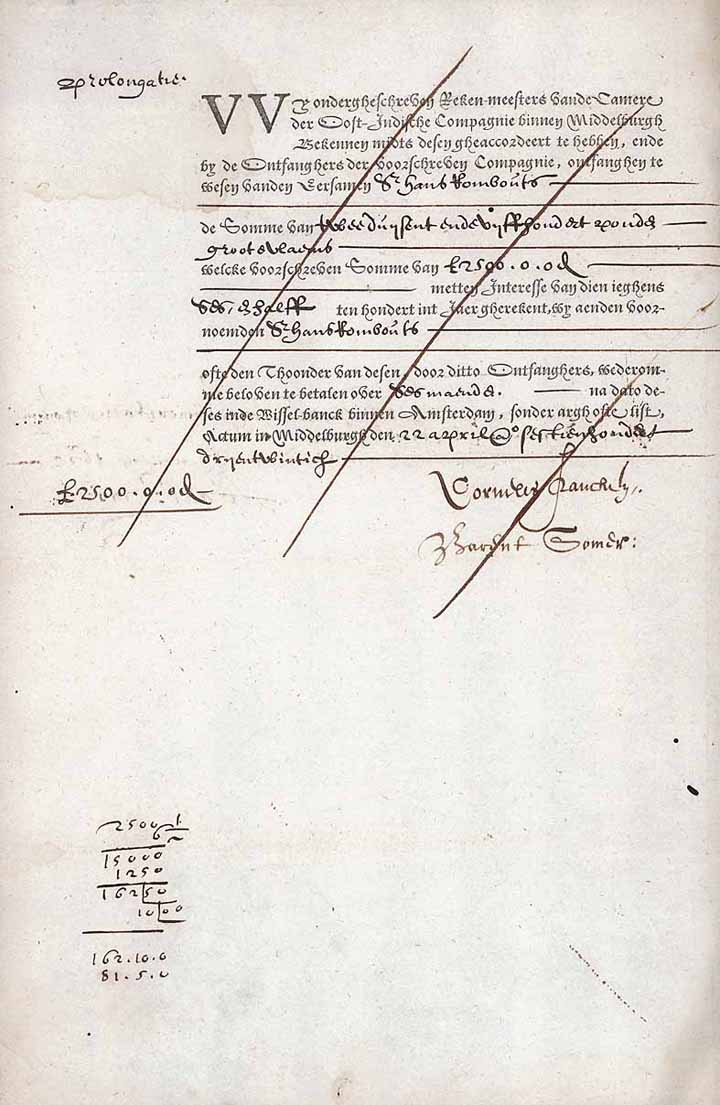 prolongatie.
VVy ondergheschreven Reken-meesters vande Camere
der Oost-Indische Compagnie binnen Middelburgh
Bekennen midts desen gheaccordeert te hebben, ende
by de Ontfanghers der voorschreven Compagnie, ontfanghen te
wesen vanden Eersamen Sr. Hans Rombouts
de Somme van twee duijsent ende vijffhondert ponden
groote vlaems
welcke voorschreven Somme van £2500.0.0d
metten Interesse van dien ieghens
ses, & halff ten hondert int Jaer gherekent, wy aenden voor-
noemden Sr. Hans Rombouts
ofte den Thoonder van desen, door ditto Ontfanghers, wederom-
me beloven te betalen over ses maenden. na dato de-
ses inde Wissel-banck binnen Amsterdam, sonder argh ofte list,
Actum in Middelburgh den 22 april Ao. sestienhondert
drijentwintich
£2500.0.0d
Barent Somer:
2500
6
15000
1250
16250
1000
162.10.0
81.5.0